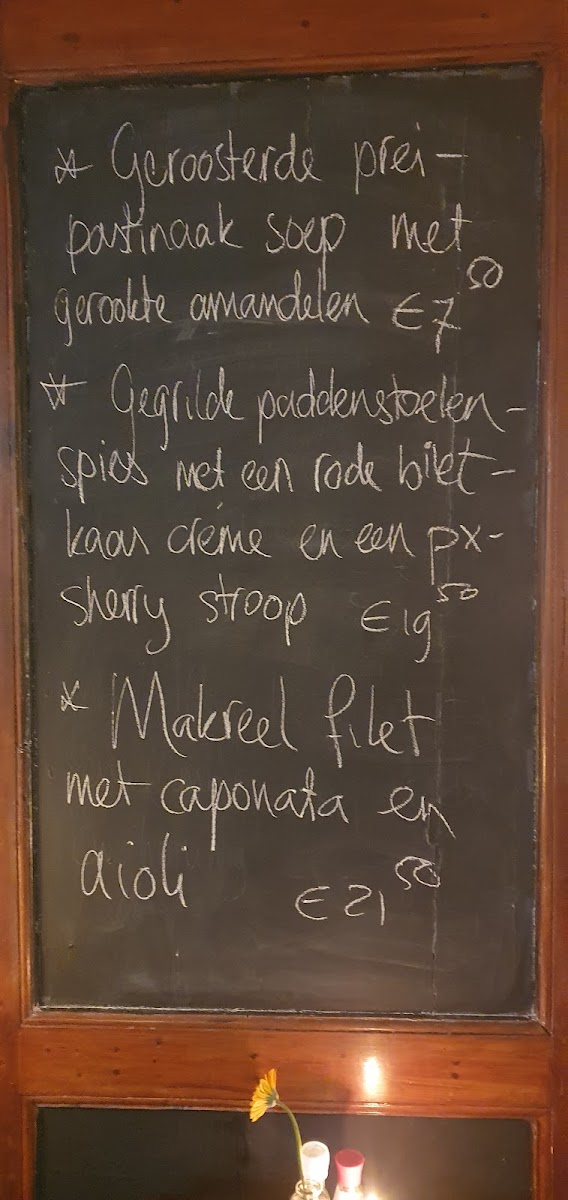 * Geroosterde prei-
pastinaak soep met
gerookte amandelen €7 50
* Gegrilde paddenstoelen-
spies met een rode biet-
kaas crème en een px-
sherry stroop €19 50
* Makreel filet
met caponata en
aioli €21 50